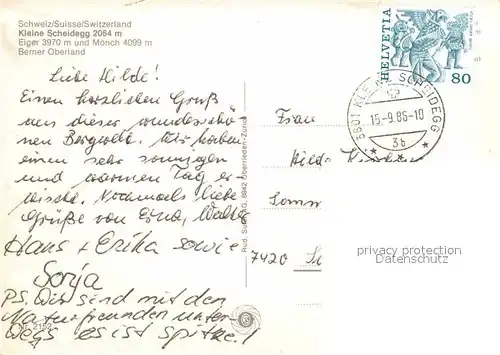 Schweiz/Suisse/Switzerland
Kleine Scheidegg 2064 m
Eiger 3970 m und Mönch 4099 m
Berner Oberland
Liebe Hilde!
Einen herzlichen Gruß
aus dieser wunderschö
nen Bergwelt. Wir haben
einen sehr sonnigen
und warmen Tag er
wischt. Nochmals liebe
Grüße von Erna, Walter
Hans + Erika sowie
Sonja
PS. Wir sind mit den
Naturfreunden unter-
wegs es ist spitze!
Nr. 2152
Rud. Suter AG, 8942 Oberrieden-Zürich
HELVETIA
80
3801 KLEINE SCHEIDEGG
15-9.86-10
3b
Frau
Hilde
Somm
7420
privacy protection
Datenschutz